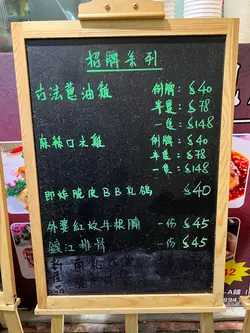 招牌系列
古法蔥油雞 例牌：$40
半隻：$78
一隻：$148
麻辣口水雞 例牌：$40
半隻：$78
一隻：$148
即炸脆皮BB乳鴿 $40
外婆紅炆牛根腩 一份 $45
鎮江排骨 一份 $45